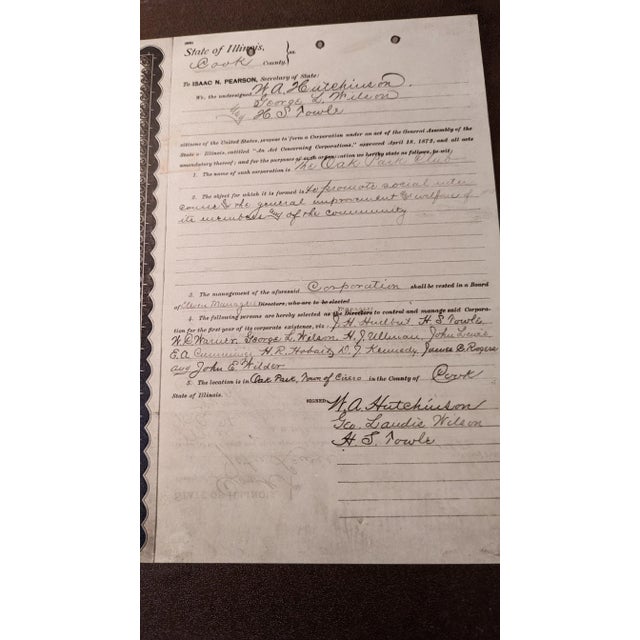 State of Illinois,
Cook County. } ss.
To ISAAC N. PEARSON, Secretary of State:
We, the undersigned, W. A. Hutchinson.
George L. Wilson
and H. S. Towle
citizens of the United States, propose to form a Corporation under an act of the General Assembly of the
State of Illinois, entitled "An Act Concerning Corporations," approved April 18, 1872, and all acts
amendatory thereof; and for the purposes of such organization we hereby state as follows, to-wit:
1. The name of such corporation is The Oak Park Club
2. The object for which it is formed is to promote social inter
course & the general improvement & welfare of
its members & of the community
3. The management of the aforesaid Corporation shall be vested in a Board
of Eleven Managers Directors, who are to be elected
4. The following persons are hereby selected as the Directors to control and manage said Corpora-
tion for the first year of its corporate existence, viz: J. H. Hurlbut H. S. Towle,
W. C. Warner George L. Wilson H. J. Ullman, John Lewis
E. A. Cummings, H. R. D. J. Kennedy, James C. Rogers
and John E. Wilder
5. The location is in Oak Park, Town of Cicero in the County of Cook
State of Illinois.
SIGNED: W. A. Hutchinson
Geo. Landis Wilson
H. S. Towle
STATE OF ILLINOIS